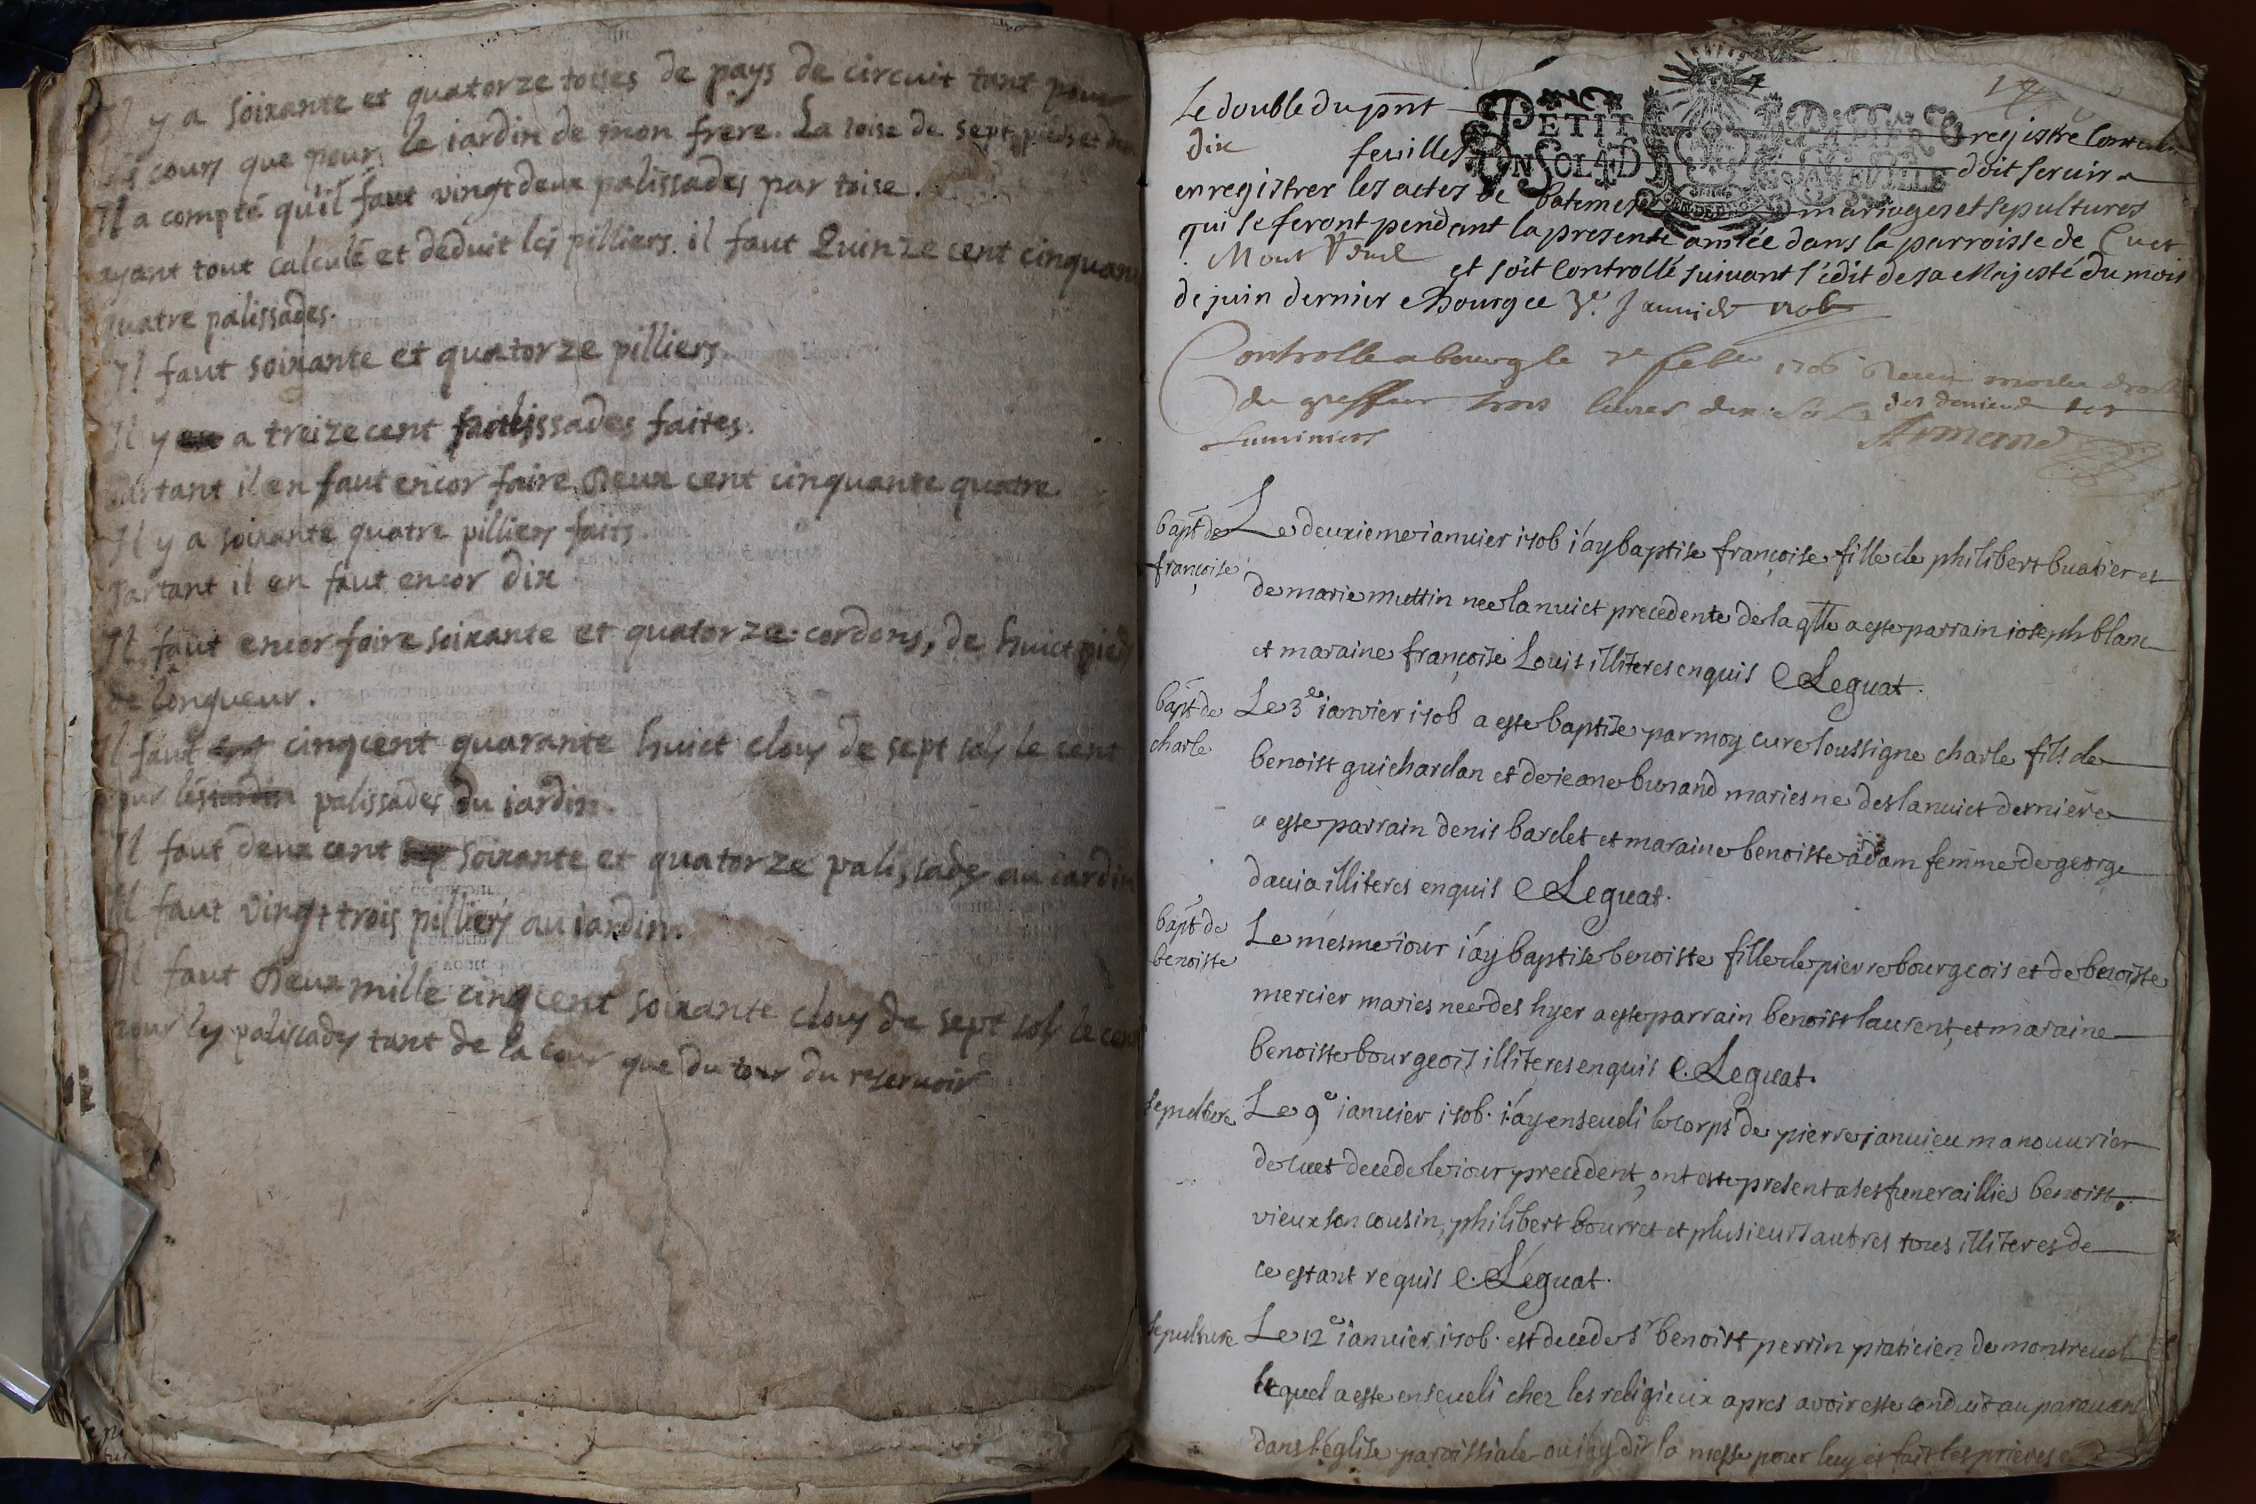 Il y a soixante et quatorze toises de pays de circuit tant pour
cours que pour le iardin de mon frere. La toise de sept pieds et
Il a compté qu'il faut vingtdeux palissades par toise.
ayant tout calculé et deduit les pilliers. il faut Quinze cent cinquante
quatre palissades.
Il faut soixante et quatorze pilliers
Il y a treize cent palissades faites.
Partant il en faut encor faire Deux cent cinquante quatre.
Il y a soixante quatre pilliers faits.
Partant il en faut encor dix
Il faut encor faire soixante et quatorze cordons, de huict pieds
de longueur.
Il faut cinqcent quarante huict clous de sept sols le cent
pour les palissades du iardin.
Il faut deux cent soixante et quatorze palissades au iardin
Il faut vingt trois pilliers au iardin.
Il faut Deux mille cinqcent soixante clous de sept sols le cent
pour les palissades tant de la cour que du tour du reservoir
Le double du pñt registre
dix feuilles doit servir a
PETIT PAPIER
UN SOL 4 D LA FEUILLE
enregistrer les actes de batemes mariages et sepultures
qui se feront pendant la presente année dans la parroisse de Cuet
Mont et soit controllé suivant l'édit de sa Majesté du mois
de juin dernier a bourg ce 3e. Janvier 1706
Controlle a bourg le 1706
du greffier trois livres dix sols des deniers des
Luminiers
bapt de Le deuxieme ianvier 1706 i'ay baptise françoise fille de philibert buatier et
françoise de marie muttin nee la nuict precedente de la qlle a este parrain ioseph blanc
et maraine françoise Louis illiteres enquis C Leguat.
bapt de Le 3e ianvier 1706 a este baptise par moy cure soussigne charle fils de
charle benoist guichardan et de ieane bunand maries ne des la nuict derniere
a este parrain denis bardet et maraine benoiste adam femme de george
dauia illiteres enquis C Leguat.
bapt de Le mesme iour i'ay baptise benoiste fille de pierre bourgeois et de benoiste
benoiste mercier maries nee des hyer a este parrain benoist laurent, et maraine
benoiste bourgeois illiteres enquis C. Leguat.
sepulture Le 9e ianvier 1706. i'ay enseveli le corps de pierre janvieu manouvrier
de cuet decede le iour precedent, ont este present a ses funerailles benoist
vieux son cousin, philibert bourret et plusieurs autres tous illiteres de
ce estant requis C. Leguat.
sepulture Le 12e ianvier 1706. est decede sr benoist perrin praticien de montrevel
lequel a este enseveli chez les religieux apres avoir este conduit auparavant
dans l'église paroissiale ou i'ay dit la messe pour luy et fait les prieres